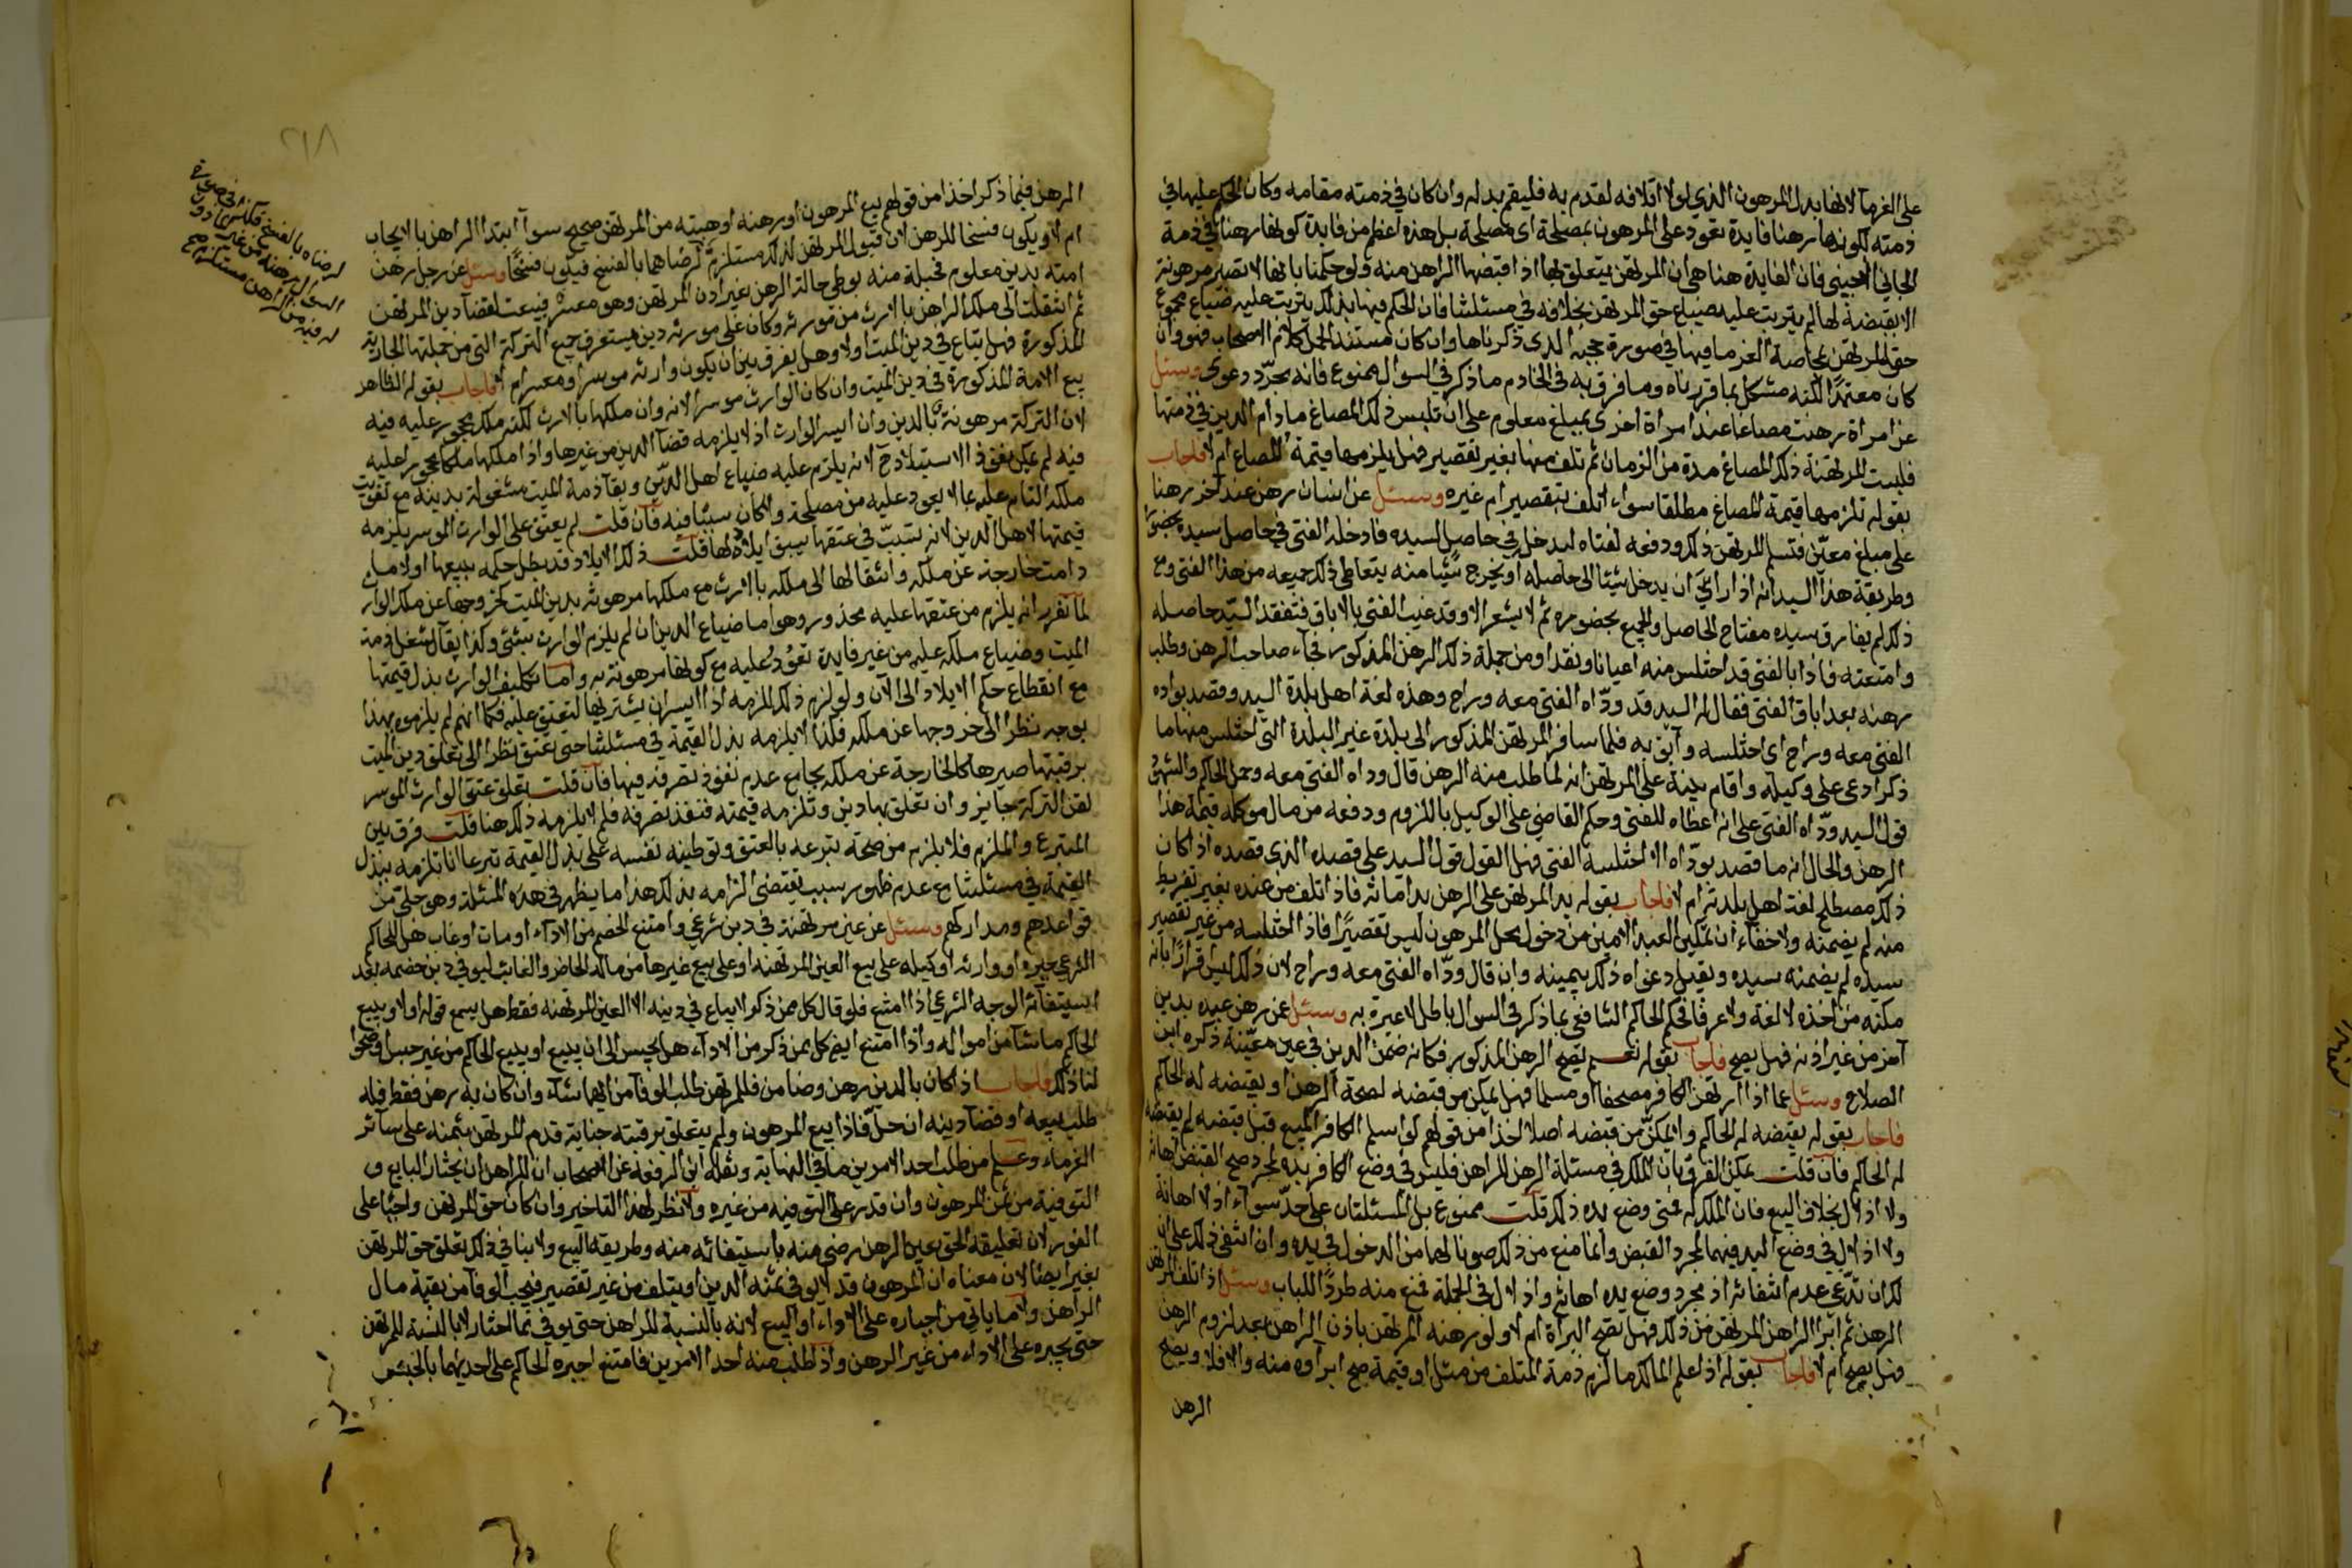 على الغرماء لانها بدل المرهون الذي لولا اتلافه لقدم به فليقم بدله وان كان في ذمته مقامه وكان الحكم عليها في
ذمته لكونها رهنا فايدة تعود على المرهون بمصلحة اى مصلحة بل هذه اعظم من فايدة كونها رهنا في ذمة
الجاني الاجنبي فان الفايدة هنا هي ان المرتهن يتعلق بها اذا قبضها الراهن منه ولو حكمنا بانها لا تصير مرهونة
الا بقبضه لها لم يترتب عليه ضياع حق المرتهن بخلافه في مسئلتنا فان الحكم فيها بذلك يترتب عليه ضياع مجموع
حق المرتهن بمحاصة الغرما فيها في صورة حجبه الذى ذكرناها وان كان مستند الحل كلام الاصحاب فهو وان
كان معتمدًا لكنه مشكل بما قررناه وما فرق به فى الخادم ما ذكر في السوال ممنوع فانه مجرّد دعوى وسئل
عن امراة رهنت مصاغا عند امراة اخرى بمبلغ معلوم على ان تلبس ذلك المصاغ ما دام الدين في ذمتها
فلبست المرتهنة ذلك المصاغ مدة من الزمان ثم تلف منها بغير تقصير فهل يلزمها قيمة المصاغ ام لا فاجاب
بقوله تلزمها قيمة المصاغ مطلقا سواء اتلف بتقصير ام غيره وسئل عن انسان رهن عند اخر رهنا
على مبلغ معيّن فتسلم المرتهن ذلك ودفعه لفتاه ليدخل في حاصل لسيده فادخله الفتى في حاصل سيده بحضوره
وطريقة هذا السيد انه اذا راى ان يدخل شيئا الى حاصله او يخرج شيئا منه يتعاطى ذلك جميعه من هذا الفتى ومع
ذلك لم يفارق سيده مفتاح الحاصل والجميع بحضوره ثم لا يشعر الا وقد غيب الفتى بالاباق فتفقد السيّد حاصله
وامتعته فاذا بالفتى قد اختلس منه اعيانا ونقدا ومن جملة ذلك الرهن المذكور فجاء صاحب الرهن وطلب
رهنه بعد اباق الفتى فقال له السيد قد ودّاه الفتى معه وراح وهذه لغة اهل بلدة السيد وقصد بوداه
الفتى معه وراح اى اختلسه وآبق به فلما سافر المرتهن المذكور الى بلدة غير البلدة التى اختلس منها ما
ذكر ادعى على وكيله واقام بينة على المرتهن انه لما طلب منه الرهن قال وداه الفتى معه وحمل الحاكم والشهود
قول السيد ودّاه الفتى على انه اعطاه للفتى وحكم القاضي على الوكيل بالملزوم ودفعه من مال موكله قيمة هذا
الرهن والحال انه ما قصد بودّاه الا اختلسه الفتى فهل القول قول السيد على قصده الذى قصده اذا كان
ذلك مصطلح لغة اهل بلدته ام لا فاجاب بقوله يد المرتهن على الرهن يد امانة فاذا تلف من عنده بغير تفريط
منه لم يضمنه ولا خفاء ان تمكين العبد الامين من دخول محل المرهون ليس تقصيرًا فاذا اختلسه من غير تقصير
سيده لم يضمنه سيده ويقبل دعواه ذلك بيمينه وان قال ودّاه الفتى معه وراح لان ذلك ليس اقرارًا بانه
مكنه من اخذه لا لغة ولا عرفا فحكم الحاكم الشافعي بما ذكر في السوال باطل لا عبرة به وسئل عمن رهن عبده بدين
آخر من غير اذنه فهل يصح فاجاب بقوله نعم يصح الرهن المذكور فكانه ضمن الدين في عين معيّنة ذكره ابن
الصلاح وسئل عما اذا ارتهن الكافر مصحفا او مسلما فهل يمكن من قبضه لصحة الرهن او يقبضه له الحاكم
فاجاب بقوله يقبضه له الحاكم ولا يمكنّ من قبضه اصلا اخذا من قولهم لو اسلم الكافر المبيع قبل قبضه لم يقبضه
له الحاكم فان قلت يمكن الفرق بان الملك في مسئلة الرهن للراهن فليس في وضع الكافر يده لمجرد صح القبض اهانة
ولا اذلال بخلاف البيع فان الملك له فتى وضع يده ذلك قلت ممنوع بل المسئلتان على حدّ سواء اذ لا اهانة
ولا اذلال في وضع اليد فيهما لمجرد القبض وانما منع من ذلك صونا لهما من الدخول في يده وان انتفى ذلك على ان
لك ان تدّعي عدم انتفائه اذ مجرد وضع يده اهانة واذلال في الجملة فمنع منه طردًا للباب وسئل اذا تلف المرتهن
الرهن ثم ابرا الراهن المرتهن من ذلك فهل تصح البراة ام لا ولو رهنه المرتهن باذن الراهن بعد لزوم الرهن
فهل يصح ام لا فاجاب بقوله اذا علم المالك ما لزم ذمة المتلف من مثل او قيمة صح ابراوه منه والا فلا ويصح
الرهن
٢١٨
المرهن فيما ذكر اخذا من قولهم بيع المرهون او رهنه او هبته من المرتهن صحيح سوآ ابتدا الراهن بالايجاب
ام لا ويكون فسخا للرهن لان قبول المرتهن لذلك مستلزمٌ لرضاهما بالفسخ فيكون فسخًا وسئل عن رجل رهن
امته بدين معلوم فحبلت منه بوطئ حالة الرهن بغير اذن المرتهن وهو معسر فبيعت لقضآ دين المرتهن
ثم انتقلت الى ملك الراهن بالارث من مورثه وكان على مورثه دين يستغرق جميع التركة التى من جملتها الجارية
المذكورة فهل تباع في دين الميت او لا وهل يفرق بين ان يكون وارثه موسرا او معسرا ام لا فاجاب بقوله الظاهر
بيع الامة المذكورة في دين الميت وان كان الوارث موسرا لانه وان ملكها بالارث لكنه ملك محجور عليه فيه
لان التركة مرهونة بالدين وان ايسر الوارث اذ لا يلزمه قضآ الدين من غيرها واذا ملكها ملكا محجورا عليه
فيه لم يمكن نفوذ الاستيلاد ح لانه يلزم عليه ضياع اهل الدّين وبقآ ذمة الميت مشغولة بدينه مع تفويت
ملكه التام عليه بما لا يعود عليه من مصلحة ولا كان سببا فيه فان قلت لم يعتق على الوارث الموسر ويلزمه
قيمتها لاهل الدين لانه تسبّب في عتقها بسبق ايلاده لها قلت ذلك الايلاد قد بطل حكمه ببيعها اولا ما
دامت خارجة عن ملكه وانتقالها الى ملكه بالارث مع ملكها مرهونة بدين الميت كخروجها عن ملك الوارث
لما تقرر انه يلزم من عتقها عليه محذور وهو اما ضياع الدين ان لم يلزم الوارث بشئ وكذا بقآ لشغل ذمة
الميت وضياع ملكه عليه من غير فايدة تعوُدُ عليه مع كونها مرهونة به واما تكليف الوارث بذل قيمتها
مع انقطاع حكم الايلاد الى الآن ولو لزمه ذلك للزمه اذا ايسر ان يشتريها لتعتق عليه فكما انهم لم يلزموه بهذا
بوجه نظرا الى خروجها عن ملكه فكذا لا يلزمه بذل القيمة في مسئلتنا حتى تعتق نظرا الى تعلق دين الميت
برقبتها صيرها كالخارجة عن ملكه بجامع عدم نفوذ تصرفه فيها فان قلت تعلق عتق الوارث الموسر
لقن التركة جايز وان تعلق بها دين وتلزمه قيمته فنفذ تصرفه فلم لا يلزمه ذلك هنا قلت فرق بين
المتبرع والملزم فلا يلزم من صحة تبرعه بالعتق وتوطينه نفسه على بذل القيمة تبرعا انا نلزمه ببذل
القيمة في مسئلتنا مع عدم ظهور سبب يقتضى الزامه بذلك هذا ما يظهر في هذه المسئلة وهو جلىّ من
قواعدهم ومداركهم وسئل عن عين مرتهنة في دين شرعي وامتنع الخصم من الاداء او مات او غاب هل للحاكم
الشرعى جبره او وارثه او وكيله على بيع العين المرتهنة او على بيع غيرها من مال الحاضر والغائب ليوفي دين خصمه بعد
استيفائه الوجه الشرعي اذا امتنع فلو قال كل ممن ذكر لا يباع في دينه الا العين المرتهنة فقط هل يسمع قوله او لا ويبيع
الحاكم ما شآ من امواله واذا امتنع ايضا كل ممن ذكر من الاداء هل يحبس الى ان يبيع او يبيع الحاكم من غير حبس اوضحوا
لنا ذلك فاجاب اذا كان بالدين رهن وضامن فللمرتهن طلب الوفآ من ايهما شآء وان كان به رهن فقط فله
طلب بيعه او قضآ دينه ان حلّ فاذا بيع المرهون ولم يتعلق برقبته جناية قدم المرتهن بثمنه على سآئر
الغرماء وعلم من طلب احد الامرين ما في النهاية ونقله ابن الرفعة عن الاصحاب ان للراهن ان يختار البايع و
التوفية من ثمن المرهون وان قدر على التوفية من غيره ولا نظر لهذا التاخير وان كان حق المرتهن واجبًا على
الفور لان تعليقه الحق بعين الرهن رضى منه باستيفائه منه وطريقه البيع ولا ينافي ذلك تعلق حق المرتهن
بغير ايضا لان معناه ان المرهون قد لا يوفى ثمنه الدين او يتلف من غير تقصير فيجب الوفآ من بقية مال
الراهن ولا ما ياتي من اجباره على الاداء او البيع لانه بالنسبة للراهن حتى يوفي مما اختار لا بالنسبة للمرتهن
حتى يجبره على الاداء من غير الرهن واذا طلب منه احد الامرين فامتنع اجبره الحاكم على احديهما بالحبس